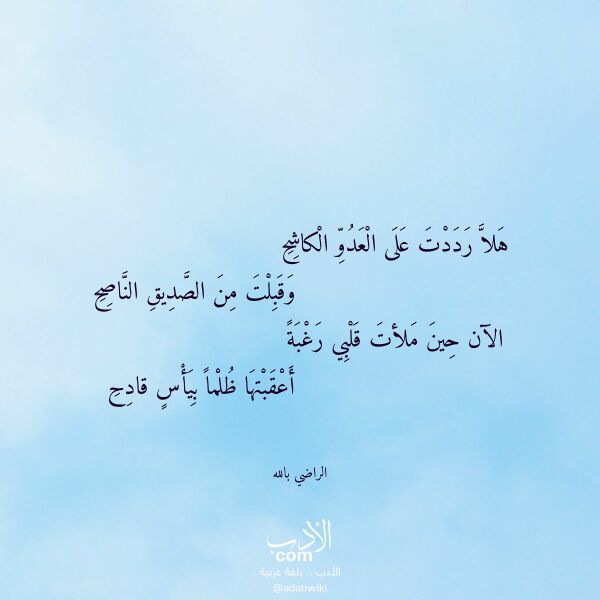 هَلاَّ رَدَدْتَ عَلَى الْعَدُوِّ الْكاشِحِ
وَقَبِلْتَ مِنَ الصَّدِيقِ النَّاصِحِ
الآن حِينَ مَلأتَ قَلْبِي رَغْبَةً
أَعْقَبْتَهَا ظُلْماً بِيَأْسٍ قادِحِ
الراضي بالله
الأدب
com
الأدب .. بلغة عربية
@adabwiki